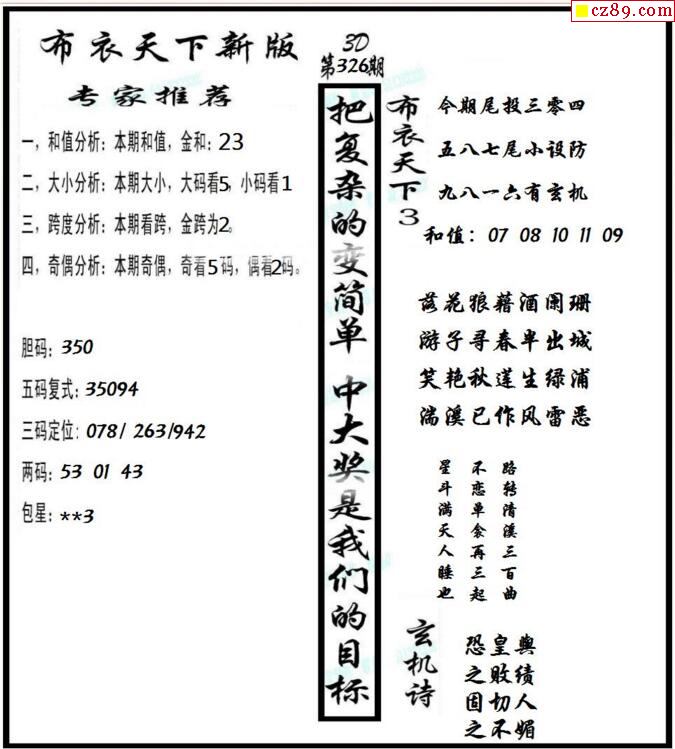 cz89.com
布衣天下新版
专家推荐
一，和值分析：本期和值，金和：23
二，大小分析：本期大小，大码看5，小码看1
三，跨度分析：本期看跨，金跨为2。
四，奇偶分析：本期奇偶，奇看5码，偶看2码。
胆码：350
五码复式：35094
三码定位：078/ 263/942
两码：53 01 43
包星：**3
3D
第326期
把复杂的变简单 中大奖是我们的目标
布衣天下3
今期尾投三零四
五八七尾小设防
九八一六有玄机
和值：07 08 10 11 09
落花狼藉酒阑珊
游子寻春半出城
笑艳秋莲生绿浦
湍溪已作风雷恶
路转清溪三百曲
不恋单衾再三起
星斗满天人睡也
玄机诗
恐皇舆
之败绩
固切人
之不媚